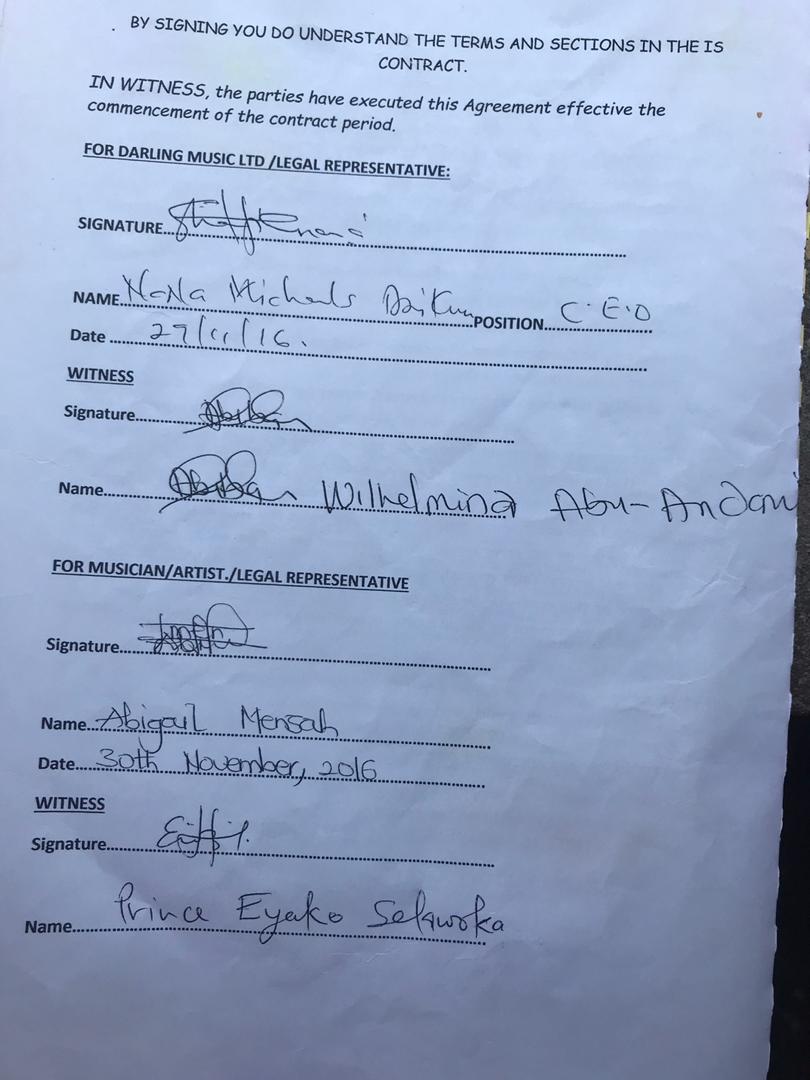 . BY SIGNING YOU DO UNDERSTAND THE TERMS AND SECTIONS IN THE IS
CONTRACT.
IN WITNESS, the parties have executed this Agreement effective the
commencement of the contract period.
FOR DARLING MUSIC LTD /LEGAL REPRESENTATIVE:
SIGNATURE
NAME NaNa Michaels POSITION C.E.O
Date 29/11/16.
WITNESS
Signature
Name Wilhelmina Abu-Andani
FOR MUSICIAN/ARTIST./LEGAL REPRESENTATIVE
Signature
Name Abigail Mensah
Date 30th November, 2016
WITNESS
Signature
Name Prince Eyako